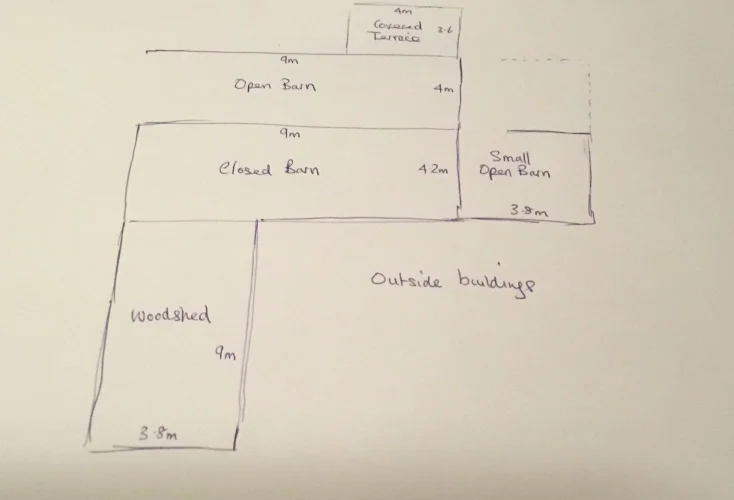 4m
Covered 3.6
Terrace
9m
Open Barn 4m
9m
Closed Barn 4.2m
Small
Open Barn
3.8m
Outside buildings
Woodshed
9m
3.8m